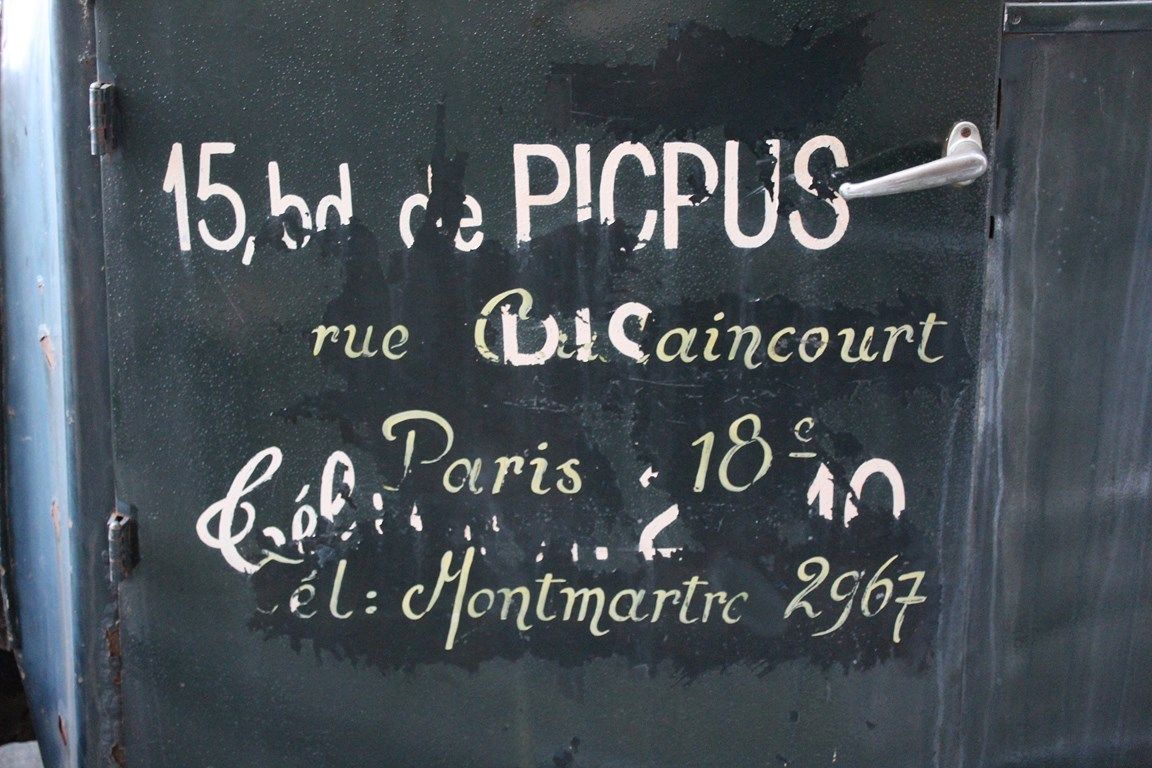 15, bd de PICPUS
rue Caulaincourt
Paris 18e
Tél
10
él: Montmartre 2967